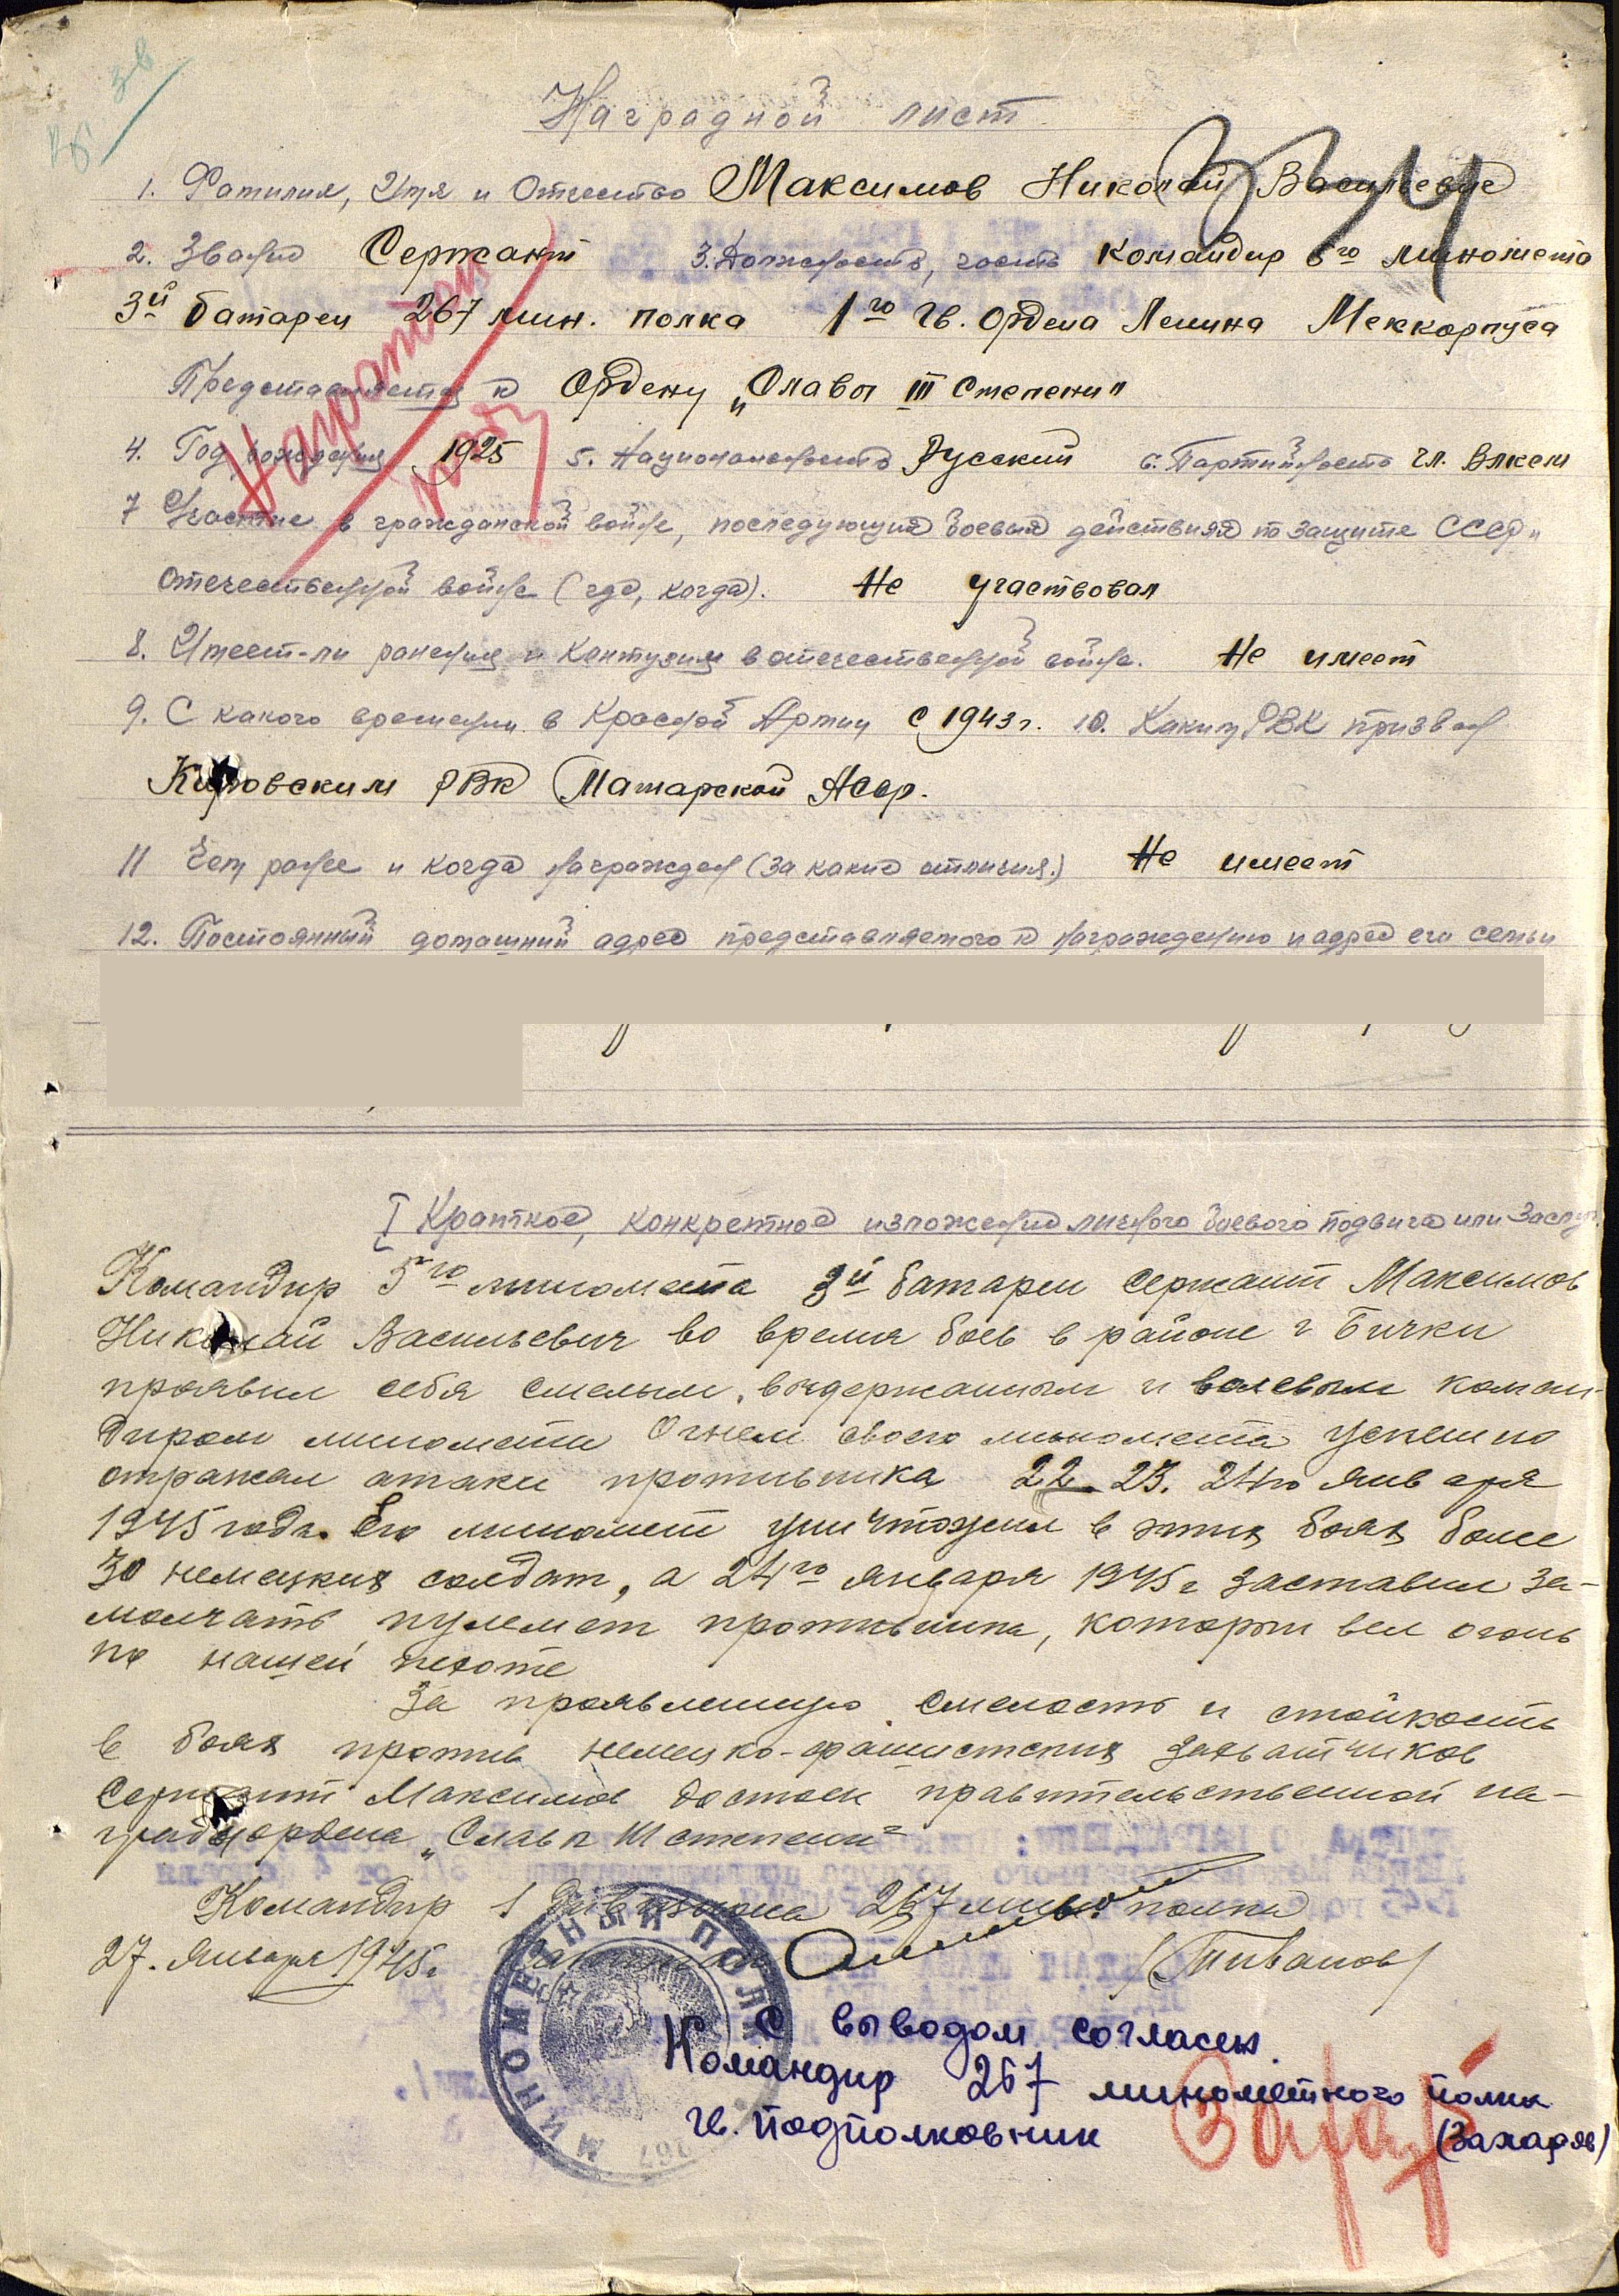 Наградной лист
1. Фамилия, Имя и Отчество Максимов Николай Васильевич
2. Звание Сержант 3. Должность, часть командир 5го миномета
3й батареи 267 мин. полка 1го Гв. Ордена Ленина Мехкорпуса
Представляется к Ордену „Слава III степени"
4. Год рождения 1925 5. Национальность Русский 6. Партийность чл. Влксм
7 Участие в гражданской войне, последующих боевых действиях по защите СССР и
отечественной войне (где, когда). Не участвовал
8. Имеет-ли ранения и контузии в отечественной войне. Не имеет
9. С какого времени в Красной Армии с 1943 г. 10. Каким РВК призван
Кировским РВК Татарской Асср.
11 Чем ранее и когда награжден (за какие отличия.) Не имеет
12. Постоянный домашний адрес представляемого к награждению и адрес его семьи
I Краткое, конкретное изложение личного боевого подвига или заслуг.
Командир 5го миномета 3й батареи сержант Максимов
Николай Васильевич во время боев в районе г Бичке
проявил себя смелым, выдержанным и волевым коман-
диром миномета Огнем своего миномета успешно
отражал атаки противника 22. 23. 24го января
1945 года. Его миномет уничтожил в этих боях более
30 немецких солдат, а 24го января 1945 г заставил за-
молчать пулемет противника, который вел огонь
по нашей пехоте
За проявленную смелость и стойкость
в боях против немецко-фашистских захватчиков
Сержант Максимов достоен правительственной на-
грады ордена „Слава III степени"
Командир 1 дивизиона 267 мин. полка
27. Января 1945 г. Капитан /Тиванов/
С выводом согласен.
Командир 267 минометного полка
Гв. Подполковник (Захаров)
Награжден
МИНОМЕТНЫЙ ПОЛК
267